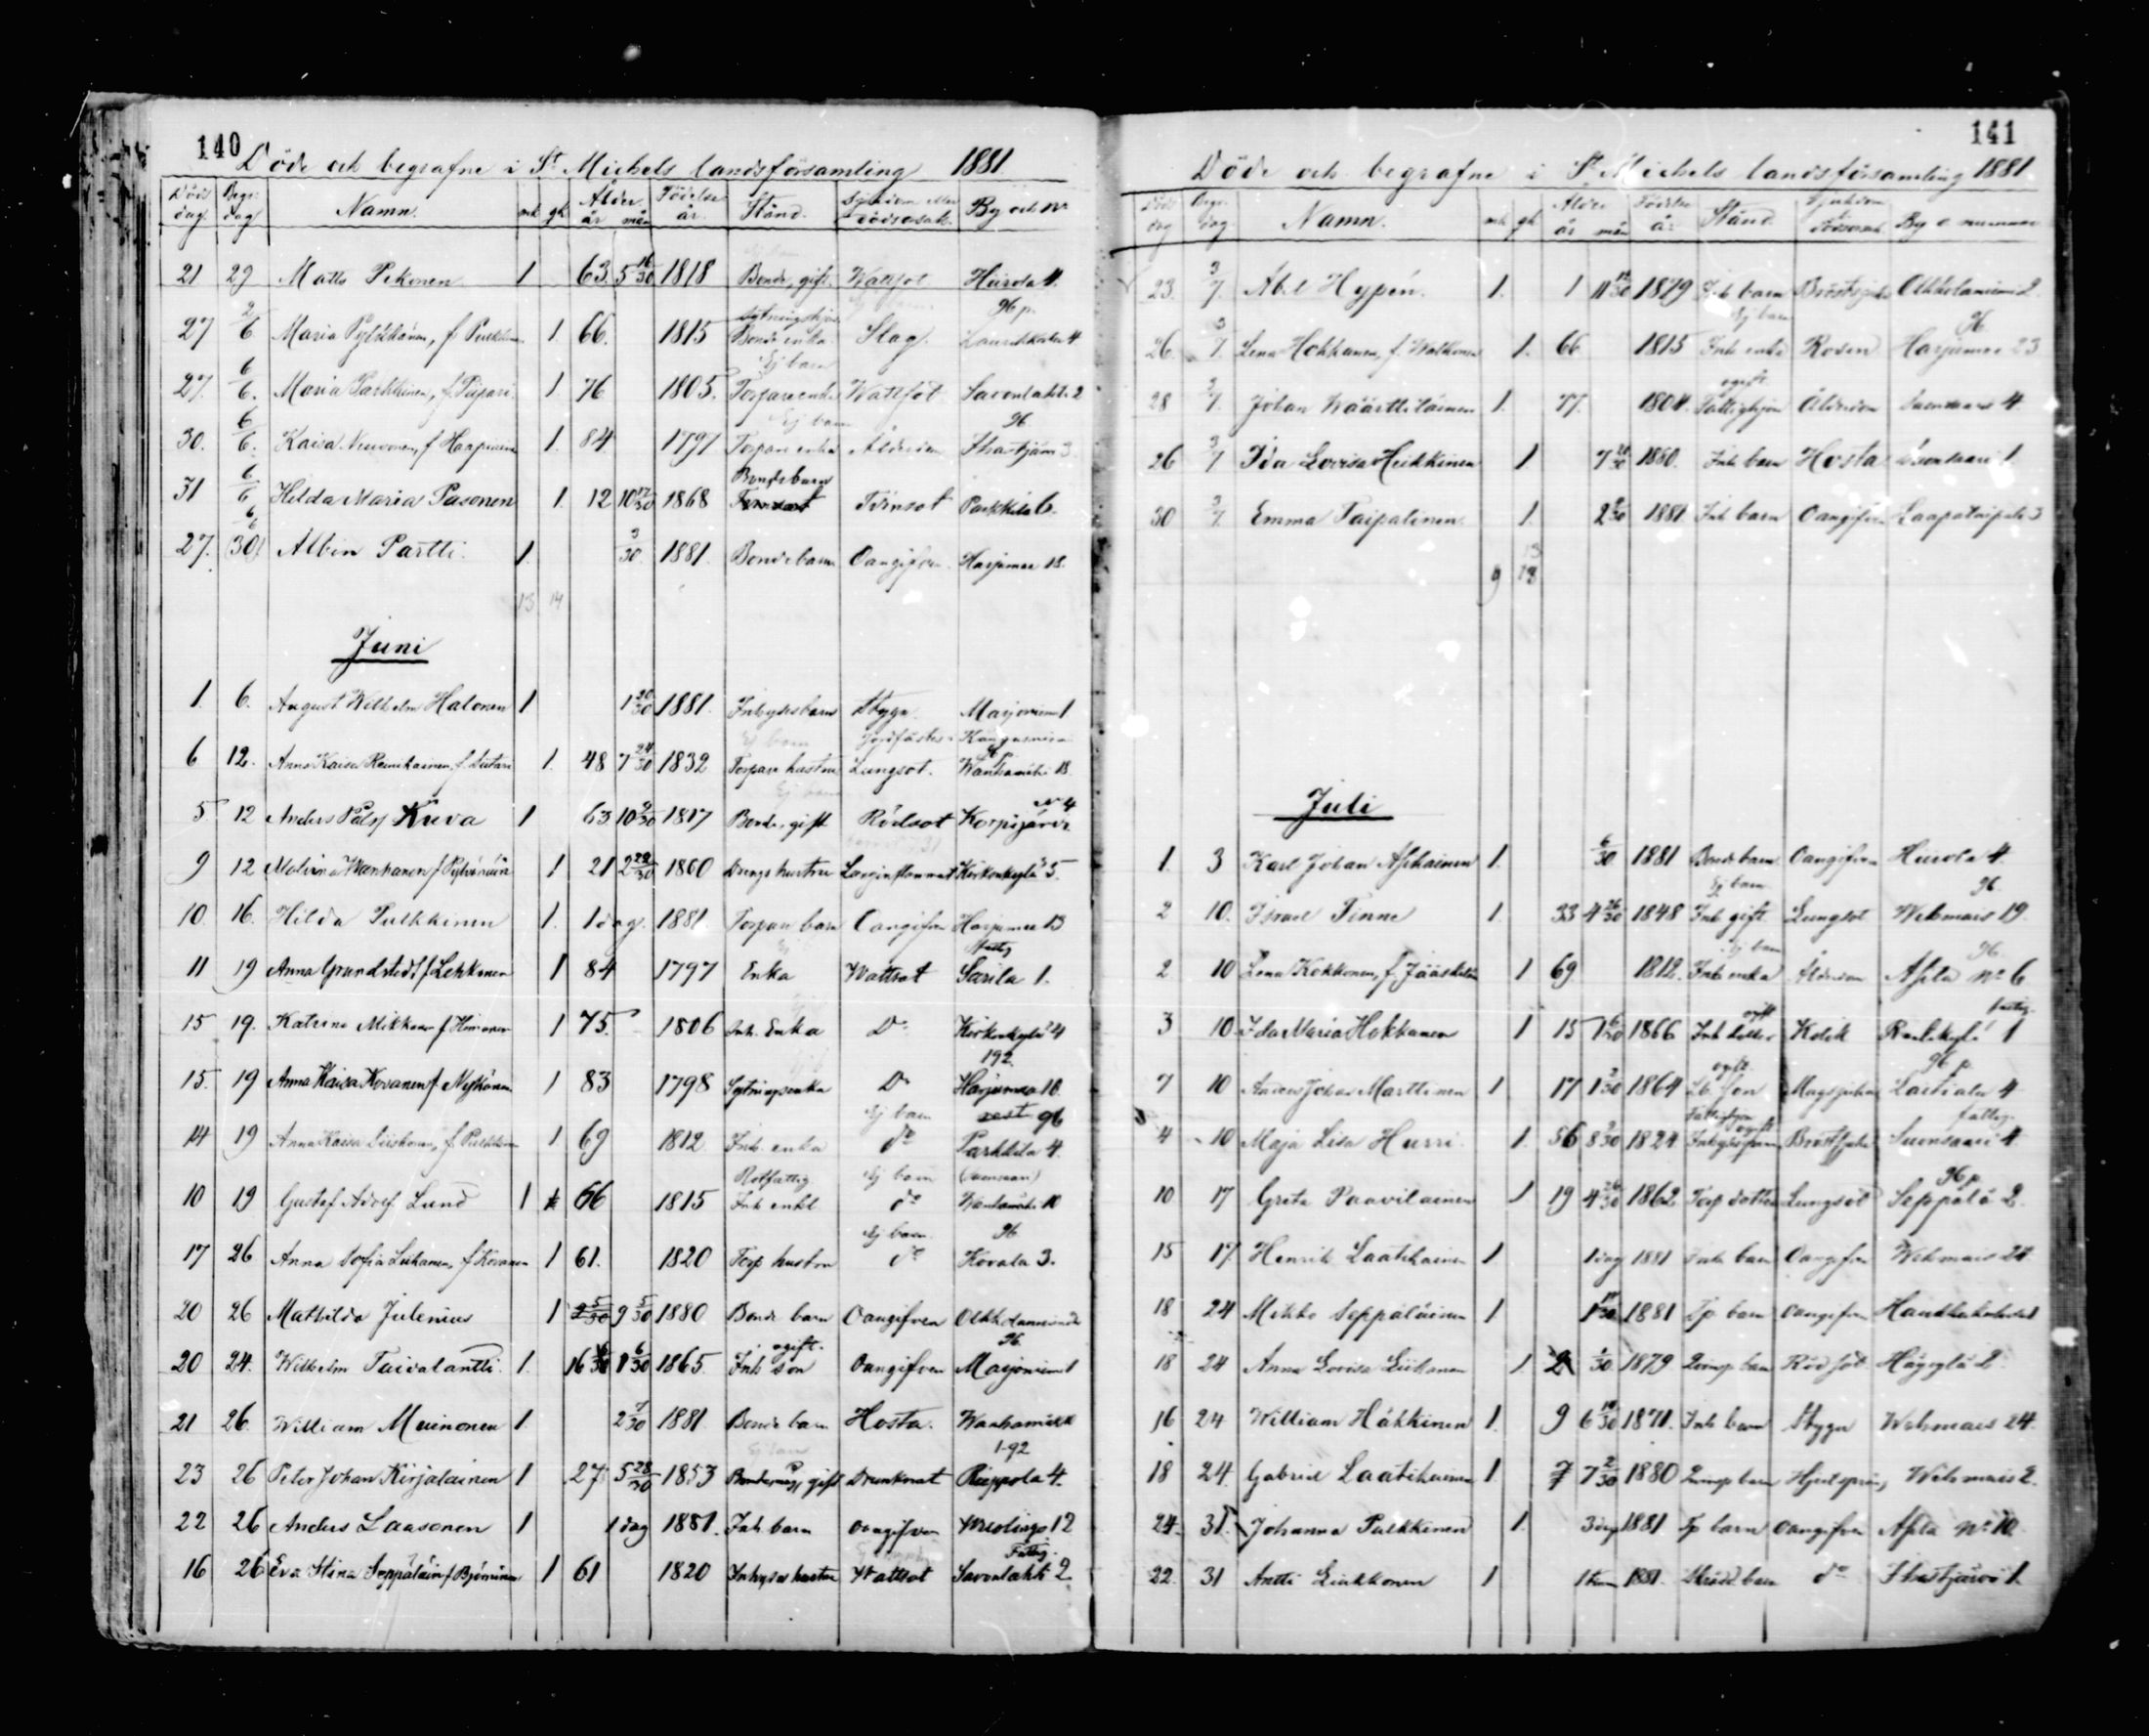 140
Döde och begrafne i St Michels landsförsamling 1881.
Död dag Begr. dag Namn. mk gk Ålder år mån Födelse år. Stånd. Sjukdom eller dödsorsak By och No
21 29 Matts Pekonen 1 63. 5 16/30 1818 Bonde, gift. Wattsot Huisola 4.
96 p.
27 2/6 Maria Pylkkönen, f. Pulkkinen 1. 66. 1815 Bonde enka. Slag. 4
Ej barn
27. 6/6. Maria Parkkinen, f. Piispari 1 76 1805. Torpareenka Wattsot Savonlahti 2
Ej barn 96
30. 6/6. Kaisa Neuvonen, f. Haapanen 1. 84. 1797 Torpare enka Ålderdom Ihastjärvi 3
Bondebarn
31 6/6 Hilda Maria Pasonen 1. 12 10 17/30 1868 Tvinsot Parkkila 6.
27. 6/6 (30) Albin Partti. 1. 3/30 1881. Bondebarn Oangifven. Harjumaa 18.
13 14
Juni
1. 6. August Wilhelm Halonen 1 1 20/30 1881. Inhysesbarn Stygn. Marjoniemi 1
Ej barn
6 12. Anna Kaisa Romikainen, f. Liutari 1. 48 7 24/30 1832 Torpare hustru Lungsot. Wanhamäki 18.
Ej barn No 4
5 12 Anders Pålss Kieva 1 63 10 9/30 1817 Bonde, gift Rödsot Korpijärvi
9 12 Malvina Wanhanen f. Pylvänäinen 1 21 2 29/30 1860 Drengs hustru Lunginflammat Kirkonkylä 5.
10. 16. Hilda Pulkkinen 1. 1 dag. 1881. Torpare barn Oangifven Harjumaa 13
11 19 Anna Grundstedt f. Lehkonen 1 84 1797 Enka Wattsot Sairila 1.
15 19. Katrina Mikkonen f. Himanen 1 75. 1806 Inh. Enka Do Kirkonkylä 4
192
15. 19 Anna Kaisa Kovanen f. Nykänen 1 83 1798 Sytningsenka Do Harjumaa 10.
Ej barn 96
14 19 Anna Kaisa Liiskonen, f. Pulkkinen 1 69 1812. Inh. enka do Parkkila 4.
Rotfattig Ej barn
10 19 Gustaf Adolf Lund 1 66 1815 Inh enkl do Wanhamäki 10
Ej barn. 96
17 26 Anna Sofia Liukanen, f. Kovanen 1 61. 1820 Torp hustru do Kovala 3.
20 26 Mathilda Julenius 1 9 5/30 1880. Bonde barn Oangifven Olkkolanniemi 2
ogift. 96.
20 24. Wilhelm Taivalantti. 1. 16 1 6/30 1865. Inh son Oangifven Marjoniemi 1
21 26. William Muinonen 1. 2 7/30 1881. Bonde barn Hosta. Wanhamäki
Ej barn 1-92
23 26 Peter Johan Kirjalainen 1 27 5 28/30 1853 gift Drunknat Rieppola 4.
22 26 Anders Laasonen 1 1 dag 1881. Inh. barn oangifven 12
Fattig.
16 26 Eva Stina Seppäläin f. Björninen 1 61 1820 Inhyses hustru Wattsot Savonlahti 2.
141
Döde och begrafne i St Michels landsförsamling 1881
Död dag Begr. dag Namn. mk gk Ålder år mån Födelse år. Stånd Sjukdom dödsorsak By o nummer
23. 3/7. Abel Hypén. 1. 1 11 1879 Inh barn Bröstsjuk Olkkolanniemi 2
Ej barn 96
26. 3/7. Lena Hokkanen, f. Walkonen 1. 66 1815 Inh enka Rosen Harjumaa 23
ogift
28 3/7. Johan Wäärttiläinen 1. 77. 1804. Fattighjon Ålderdom Suonsaari 4.
26 3/7 Ida Lovisa Heikkinen 1. 7 1880. Inh barn Hosta Suonsaari 1.
30 3/7. Emma Taipalinen. 1. 2 1881 Inh barn Oangifven 3
9 13
18
Juli
1. 3 Karl Johan Asikainen 1. 6/30 1881 Bonde barn Oangifven Huisola 4.
Ej barn 96.
2 10. Israel Finne 1. 33 4 26/30 1848 Inh gift Lungsot Wehmais 19.
Ej barn 96
2 10 Lena Kokkonen, f. Jääskeläin 1 69. 1812. Inh enka Ålderdom Asila No 6
ogift fattig.
3 10. Ida Maria Hokkanen 1 15 1866 Inh dotter Kolik 1
ogift 96 p
7 10 Anders Johan Marttinen 1 17 1 2/30 1864 Son Magsjukdom Laitiala 4
Fattighjon ogift fattig.
4 10 Maja Lisa Hurri 1. 56 8 1824 Bröstsjuk Suonsaari 4.
96 p
10 17 Greta Paavilainen 1 19 4 26/30 1862 Torp dotter Lungsot Seppälä 2.
15 17. Henrik Laatikainen 1 1 dag 1881 Inh barn Oangifven Wehmais 24.
18 24 Mikko Seppäläinen 1 1 1881 Tp barn oangifven
18 24 Anna Lovisa Liikanen 1. 1/30 1879 barn Rödsot 2.
16 24 William Häkkinen 1. 9 6 1871. Inh barn Stygn Wehmais 24.
18 24. Gabriel Laatikainen 1 7 2/30 1880 barn Wehmais 2.
24. 31. Johanna Pulkkinen 1. 3 dag 1881 Tp barn oangifven Asila No 10.
22. 31 Antti Liukkonen 1 1881. barn do Ihastjärvi 1.